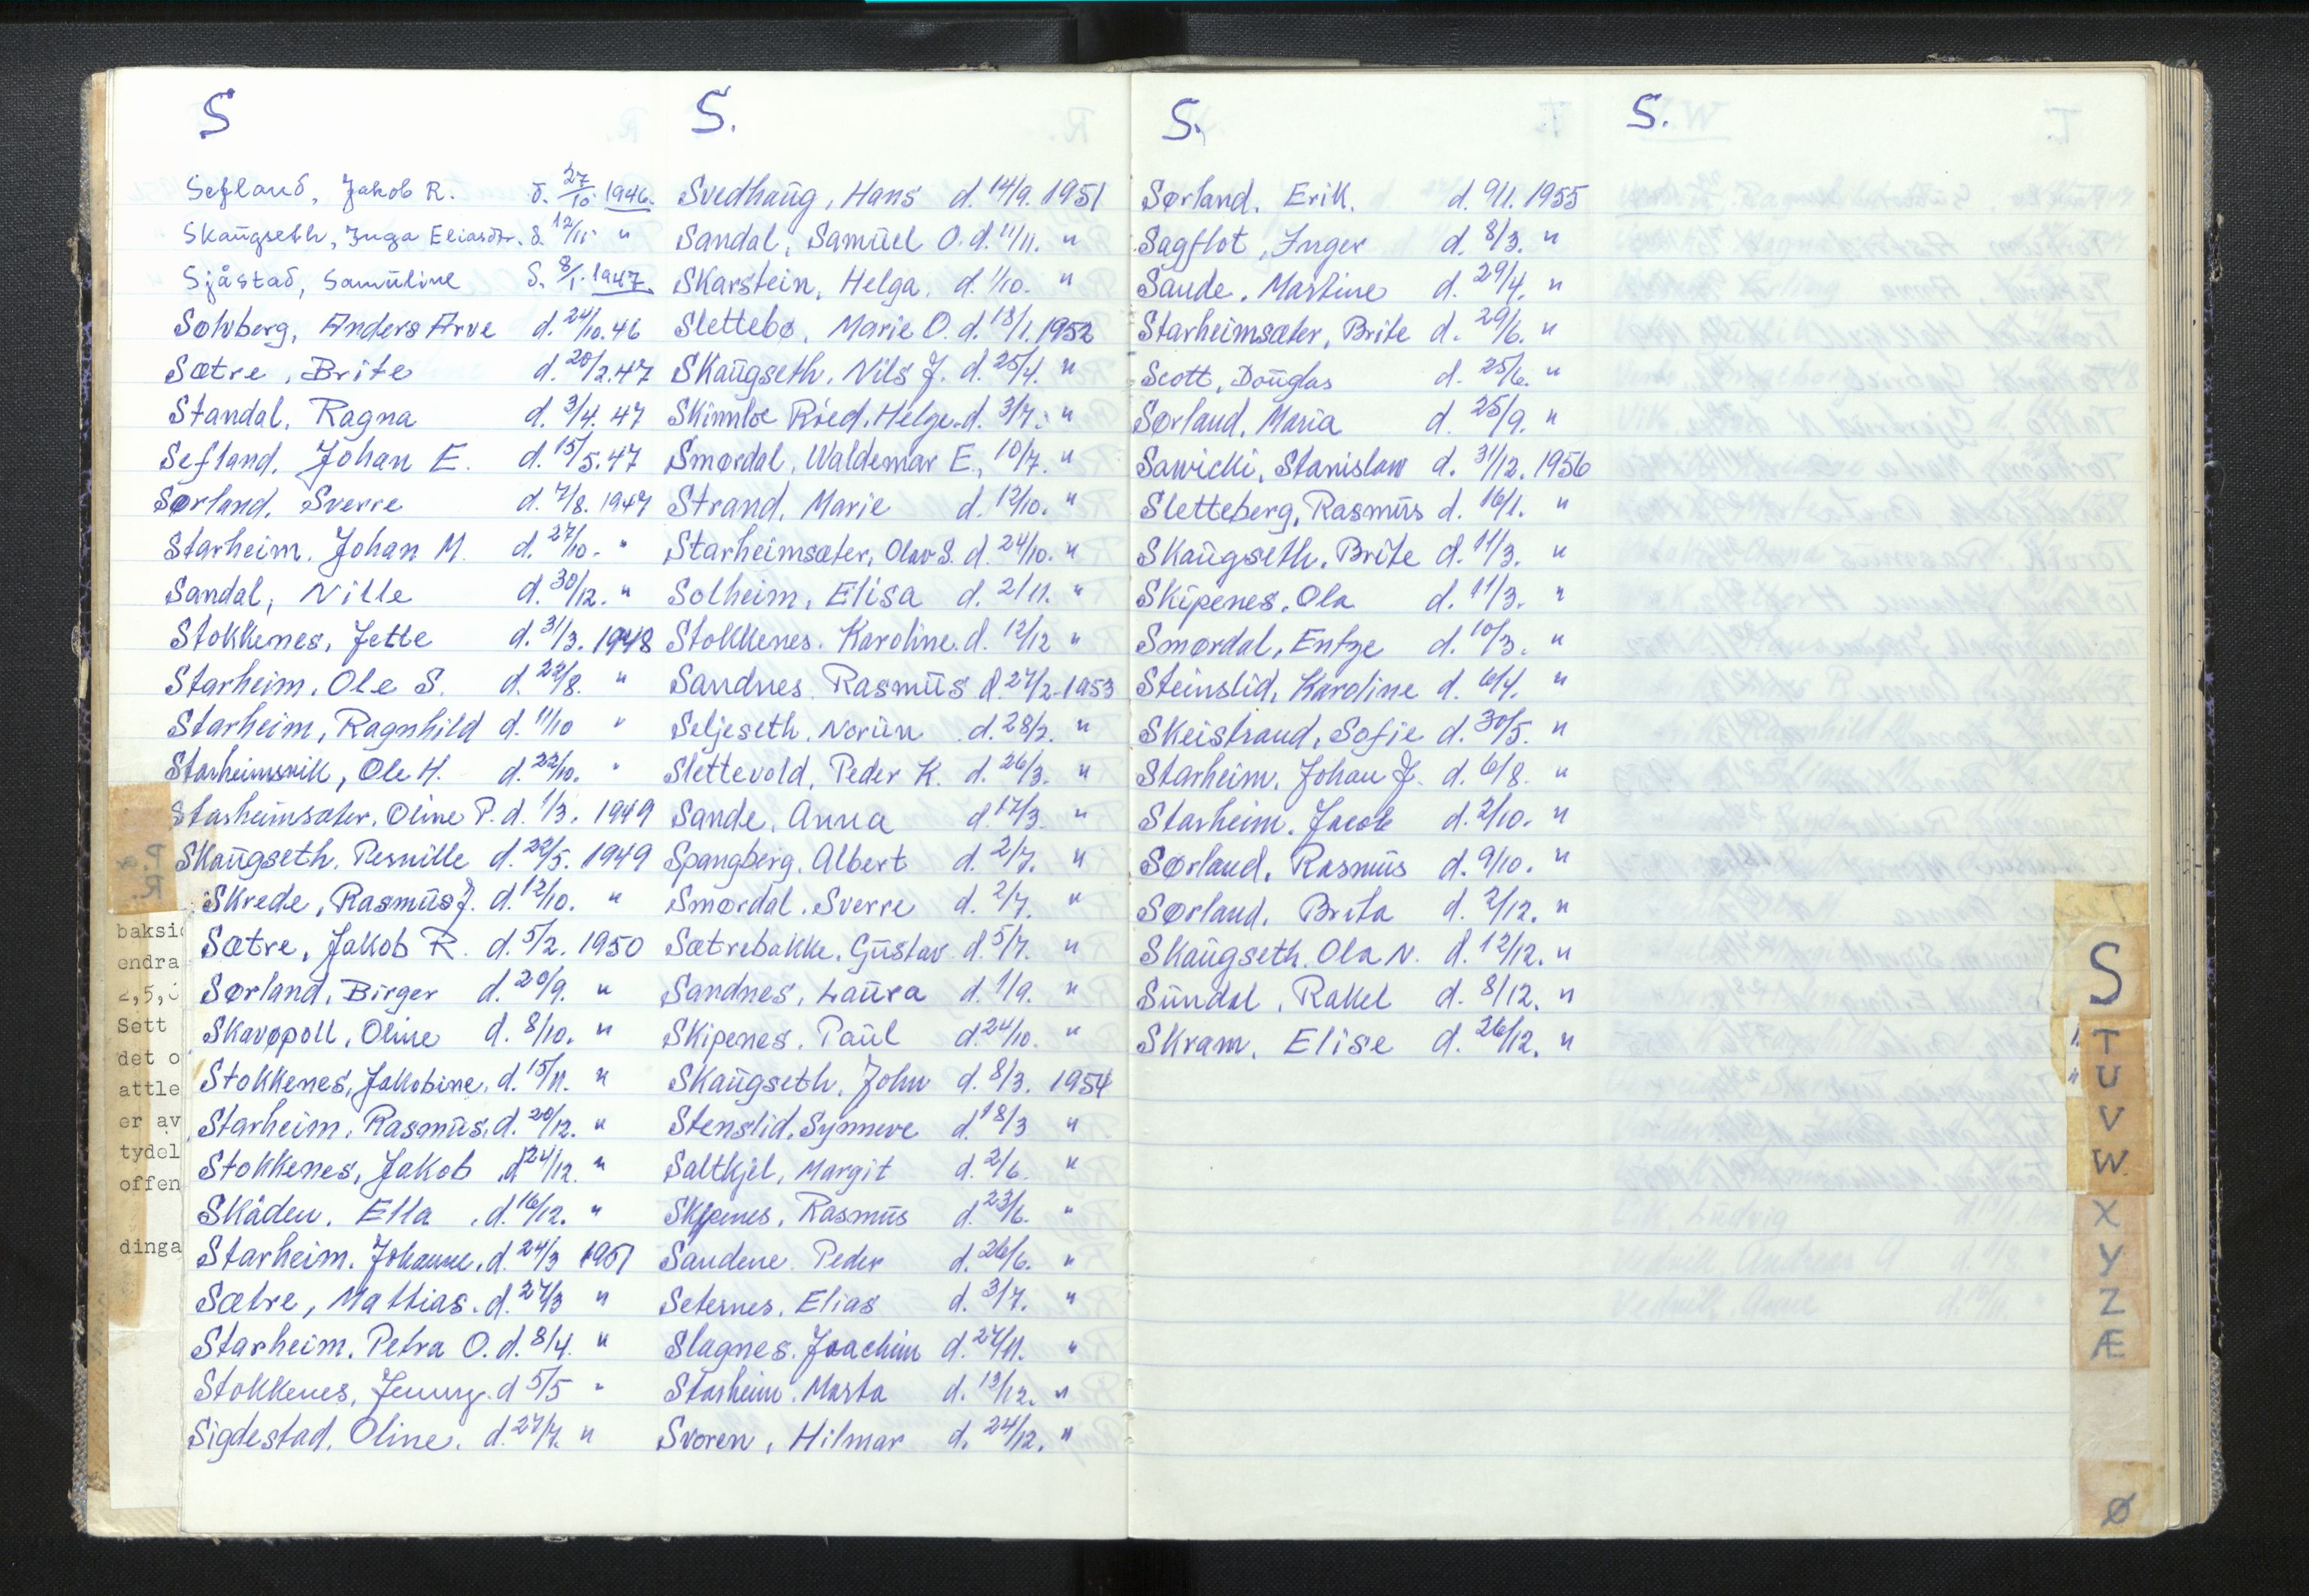 S
Sefland, Jakob R. d. 27/10 1946.
Skaugseth, Inga Eliasdtr. d. 12/11 "
Sjåstad, Samuline d. 8/1. 1947
Solvberg, Anders Arve d. 24/10. 46
Sætre, Brite d. 20/2. 47
Standal, Ragna d. 3/4. 47
Sefland, Johan E. d. 15/5. 47
Sørland, Sverre d. 7/8. 1947
Starheim, Johan M. d. 27/10. "
Sandal, Nille d. 30/12. "
Stokkenes, Jette d. 31/3. 1948
Starheim, Ole S. d. 22/8. "
Starheim, Ragnhild d. 11/10 "
Starheimsvik, Ole H. d. 22/10. "
Starheimsæter, Oline P. d. 1/3. 1949
Skaugseth, Pernille d. 22/5. 1949
Skrede, Rasmus J. d. 12/10. "
Sætre, Jakob R. d. 5/2. 1950
Sørland, Birger d. 20/9. "
Skavøpoll, Oline d. 8/10. "
Stokkenes, Jakobine, d. 15/11. "
Starheim, Rasmus, d. 20/12. "
Stokkenes, Jakob d. 24/12. "
Skåden, Ella d. 16/12. "
Starheim, Johanne, d. 24/3 1951
Sætre, Mattias. d. 27/3 "
Starheim, Petra O. d. 8/4. "
Stokkenes, Jenny. d 5/5 "
Sigdestad, Oline. d. 27/7. "
S.
Svedhaug, Hans d. 14/9. 1951
Sandal, Samuel O. d. 11/11. "
Skarstein, Helga. d. 1/10. "
Slettebø, Marie O. d. 18/1. 1952
Skaugseth, Nils J. d. 25/4. "
Skinnlo Ried, Helge. d. 3/7. "
Smørdal, Waldemar E., 10/7. "
Strand, Marie d. 12/10. "
Starheimsæter, Olav S. d. 24/10. "
Solheim, Elisa d. 2/11. "
Stokkenes, Karoline. d. 12/12 "
Sandnes, Rasmus d. 27/2-1953
Seljeseth, Norun d. 28/2. "
Slettevold, Peder K. d. 26/3. "
Sande, Anna d. 17/3. "
Spangberg, Albert d. 2/7. "
Smørdal, Sverre d. 2/7. "
Sætrebakke, Gustav d. 5/7. "
Sandnes, Laura d. 1/9. "
Skipenes, Paul d. 24/10. "
Skaugseth, John d. 8/3. 1954
Stenslid, Synneve d. 18/3 "
Saltkjel, Margit d. 2/6. "
Skipenes, Rasmus d. 23/6. "
Sandene Peder d. 26/6. "
Seternes, Elias d. 3/7. "
Slagnes, Joachim d. 27/11. "
Starheim, Marta d. 13/12. "
Svoren, Hilmar d. 24/12. "
S.
Sørland, Erik. d. 9/1. 1955
Sagflot, Inger d. 8/3. "
Sande, Martine d. 29/4. "
Starheimsæter, Brite d. 29/6. "
Scott, Douglas d. 25/6. "
Sørland, Maria d. 25/9. "
Sawicki, Stanislaw d. 31/12. 1956
Sletteberg, Rasmus d. 16/1. "
Skaugseth, Brite d. 11/3. "
Skipenes, Ola d. 11/3. "
Smørdal, d. 10/3. "
Steinslid, Karoline d. 6/4. "
Skeistrand, Sofie d. 30/5. "
Starheim, Johan J. d. 6/8. "
Starheim, Jacob d. 2/10. "
Sørland, Rasmus d. 9/10. "
Sørland, Brita d. 2/12. "
Skaugseth, Ola N. d. 12/12. "
Sundal, Rakel d. 8/12. "
Skram, Elise d. 26/12. "
S.
baksi
endra
2,5,
Sett
det o
attle
er av
tydel
offen
dinga
S
T
U
V
W.
X
Y
Z
Æ
Ø